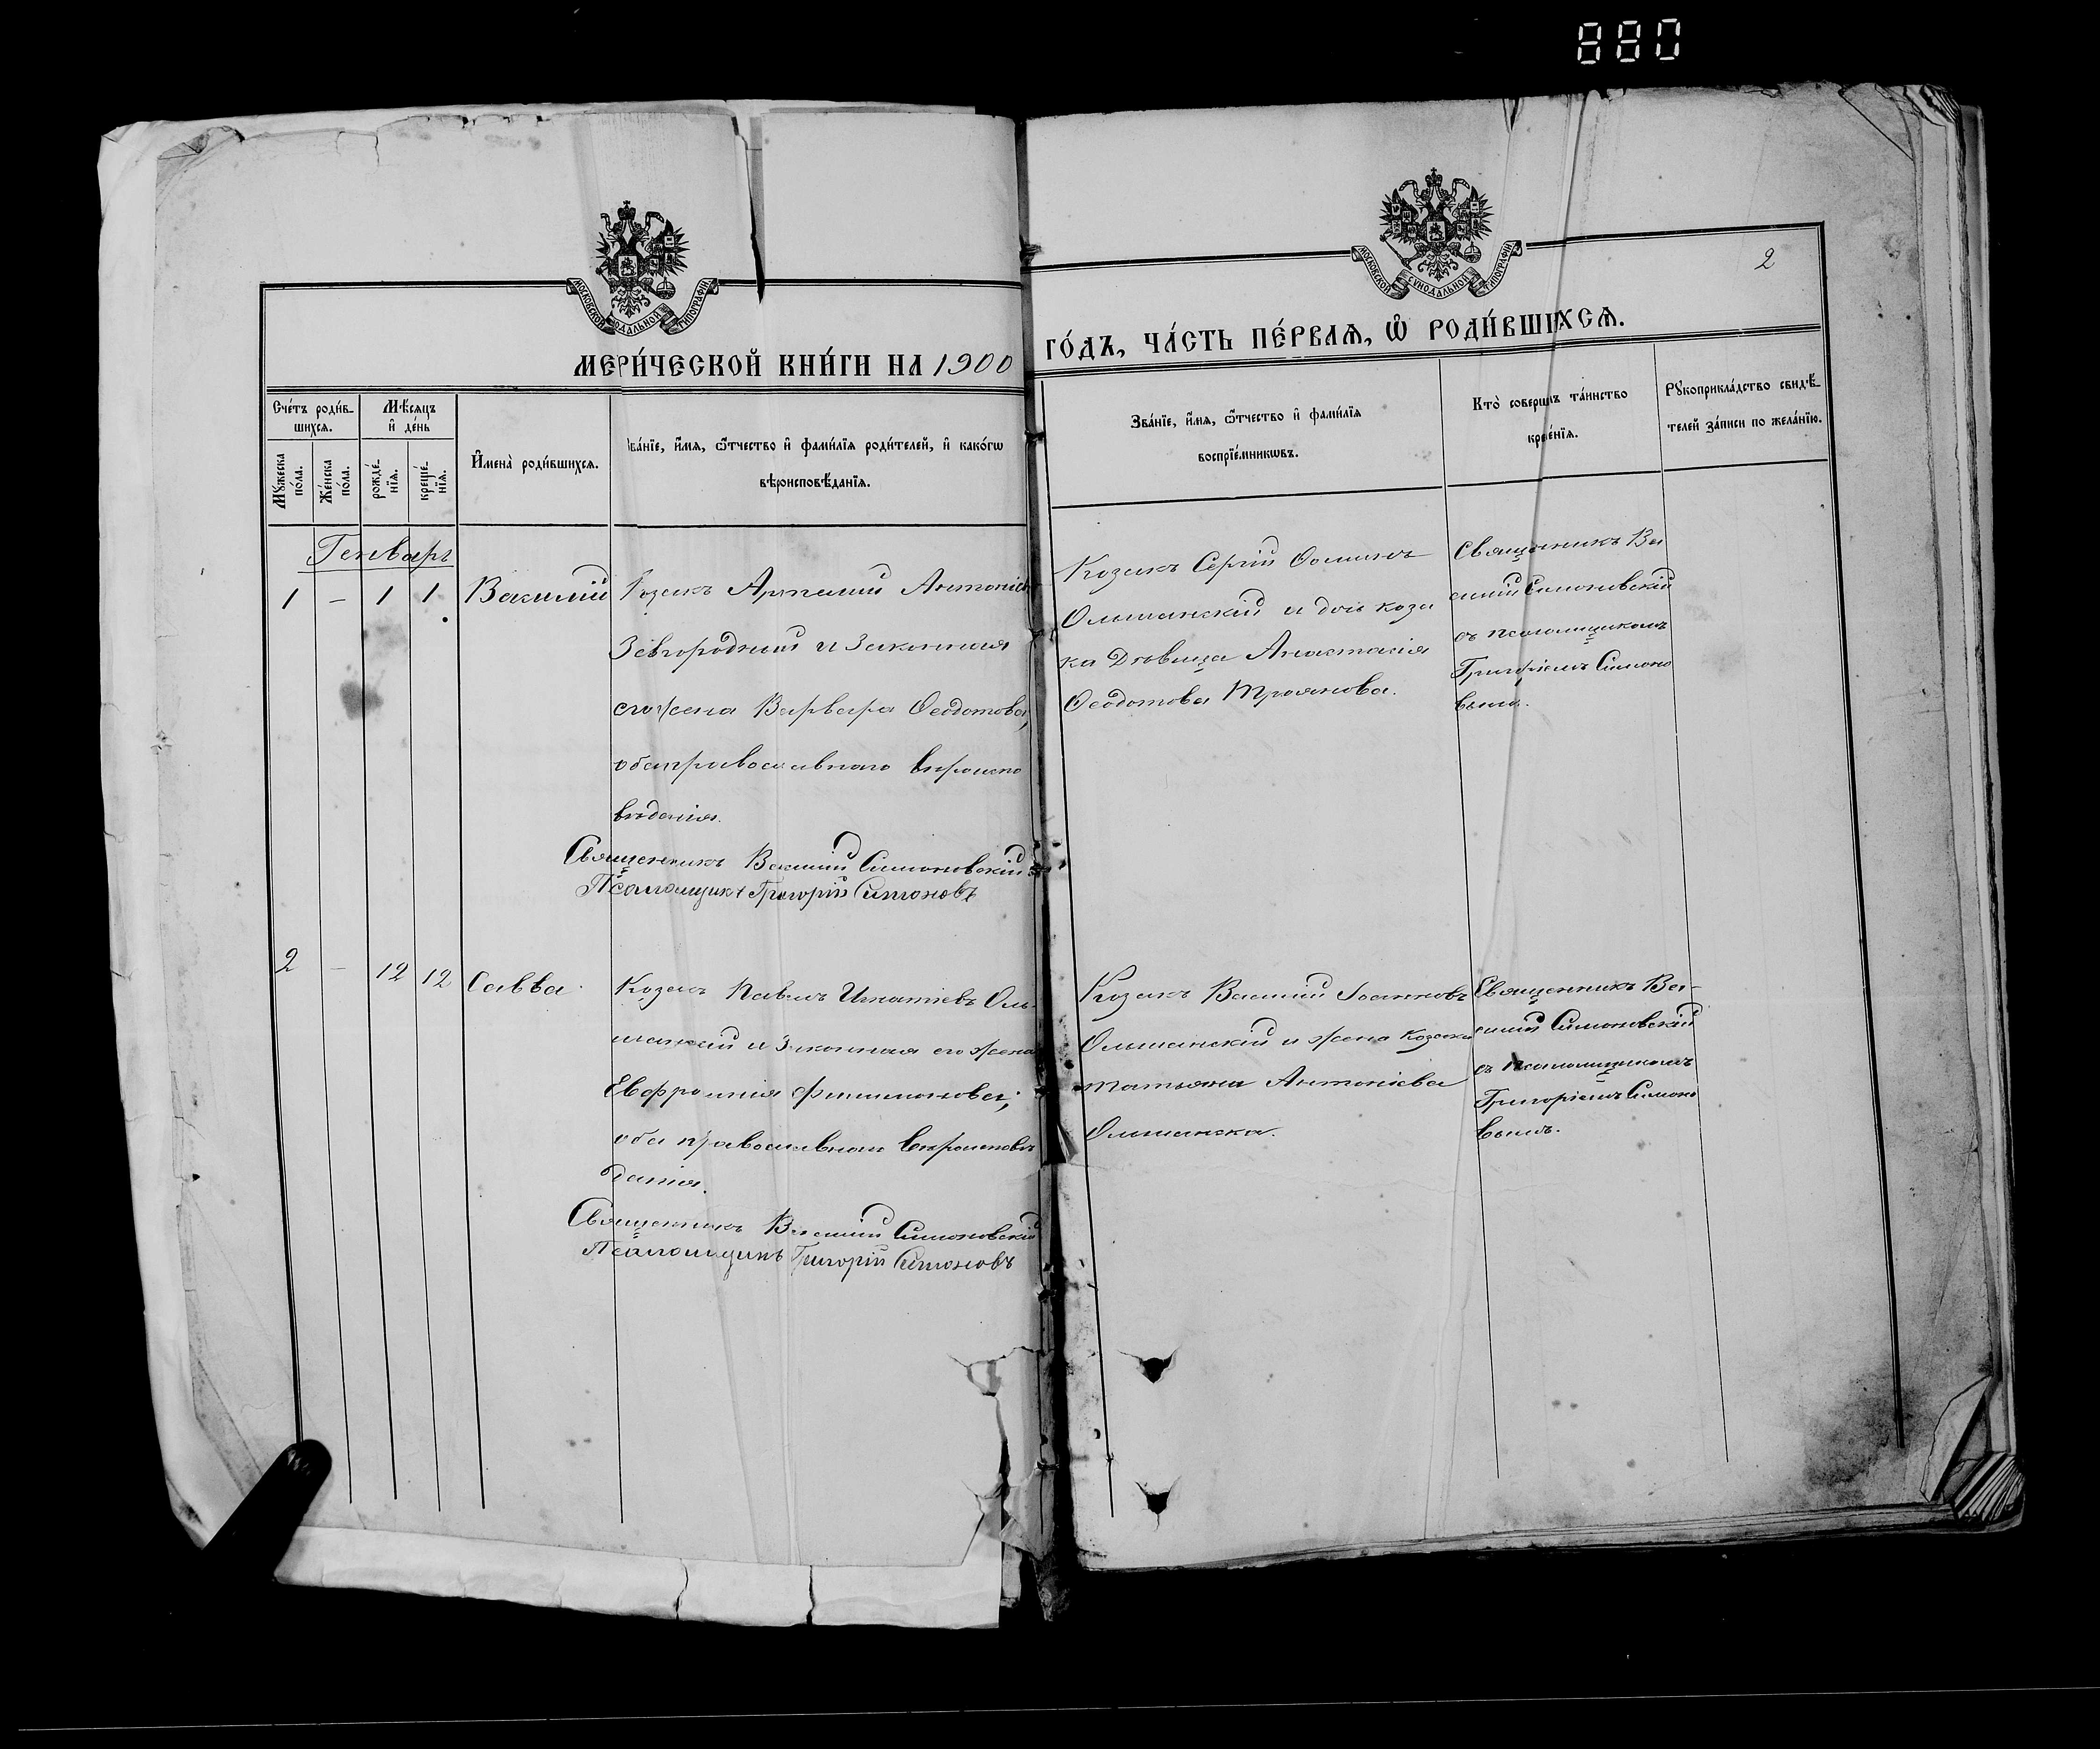 880
МОСКОВСКОЙ СѴНОДАЛЬНОЙ ТИПОГРАФІИ
МОСКОВСКОЙ СѴНОДАЛЬНОЙ ТИПОГРАФІИ
2
МЕРИ́ЧЕСКОЙ КНИ́ГИ НА 1900
ГО́ДЪ, ЧА́СТЬ ПЕ́РВАѦ, Ѽ РОДИ́ВШИХСѦ.
Сче́тъ роди́в-
шихсѧ.
Мѣ́сѧцъ
и҆ де́нь
Мꙋ́жеска
по́ла.
Же́нска
по́ла.
рожде́-
нїѧ.
креще́-
нїѧ.
И҆мена̀ роди́вшихсѧ.
Зва́нїе, и҆́мѧ, ѻ҆́тчество и҆ фами́лїѧ роди́телей, и҆ како́гѡ
вѣроисповѣ́данїѧ.
Зва́нїе, и҆́мѧ, ѻ҆́тчество и҆ фами́лїѧ
воспрїе́мникѡвъ.
Кто̀ соверши́лъ та́инство
креще́нїѧ.
Рꙋкоприкла́дство свидѣ́-
телей за́писи по жела́нїю.
Генварь
1 – 1 1 Василій
Козакъ Антоніев
и законная
его жена Варвара Ѳеодотова,
оба православнаго вѣроиспо
вѣданія.
Священникъ Василій Симоновскій
Псаломщикъ Григорій Симоновъ
Козакъ Сергій Ѳоминъ
Ольшанскій и дочь коза
ка Дѣвица Анастасія
Ѳеодотова Троянова.
Священникъ Ва
силій Симоновскій
съ псаломщикомъ
Григоріемъ Симоно
вымъ.
2 – 12 12 Савва
Козакъ Павелъ Игнатіевъ Оль-
шанскій и Законная его жена
Евфросинія Филимонова,
оба православнаго вѣроисповѣ
данія.
Священникъ Василій Симоновскій
Псаломщикъ Григорій Симоновъ
Козакъ Василій Іоанновъ
Ольшанскій и жена козака
Татьяна Антоніева
Ольшанска.
Священникъ Ва-
силій Симоновскій
съ псаломщикомъ
Григоріемъ Симоно
вымъ.